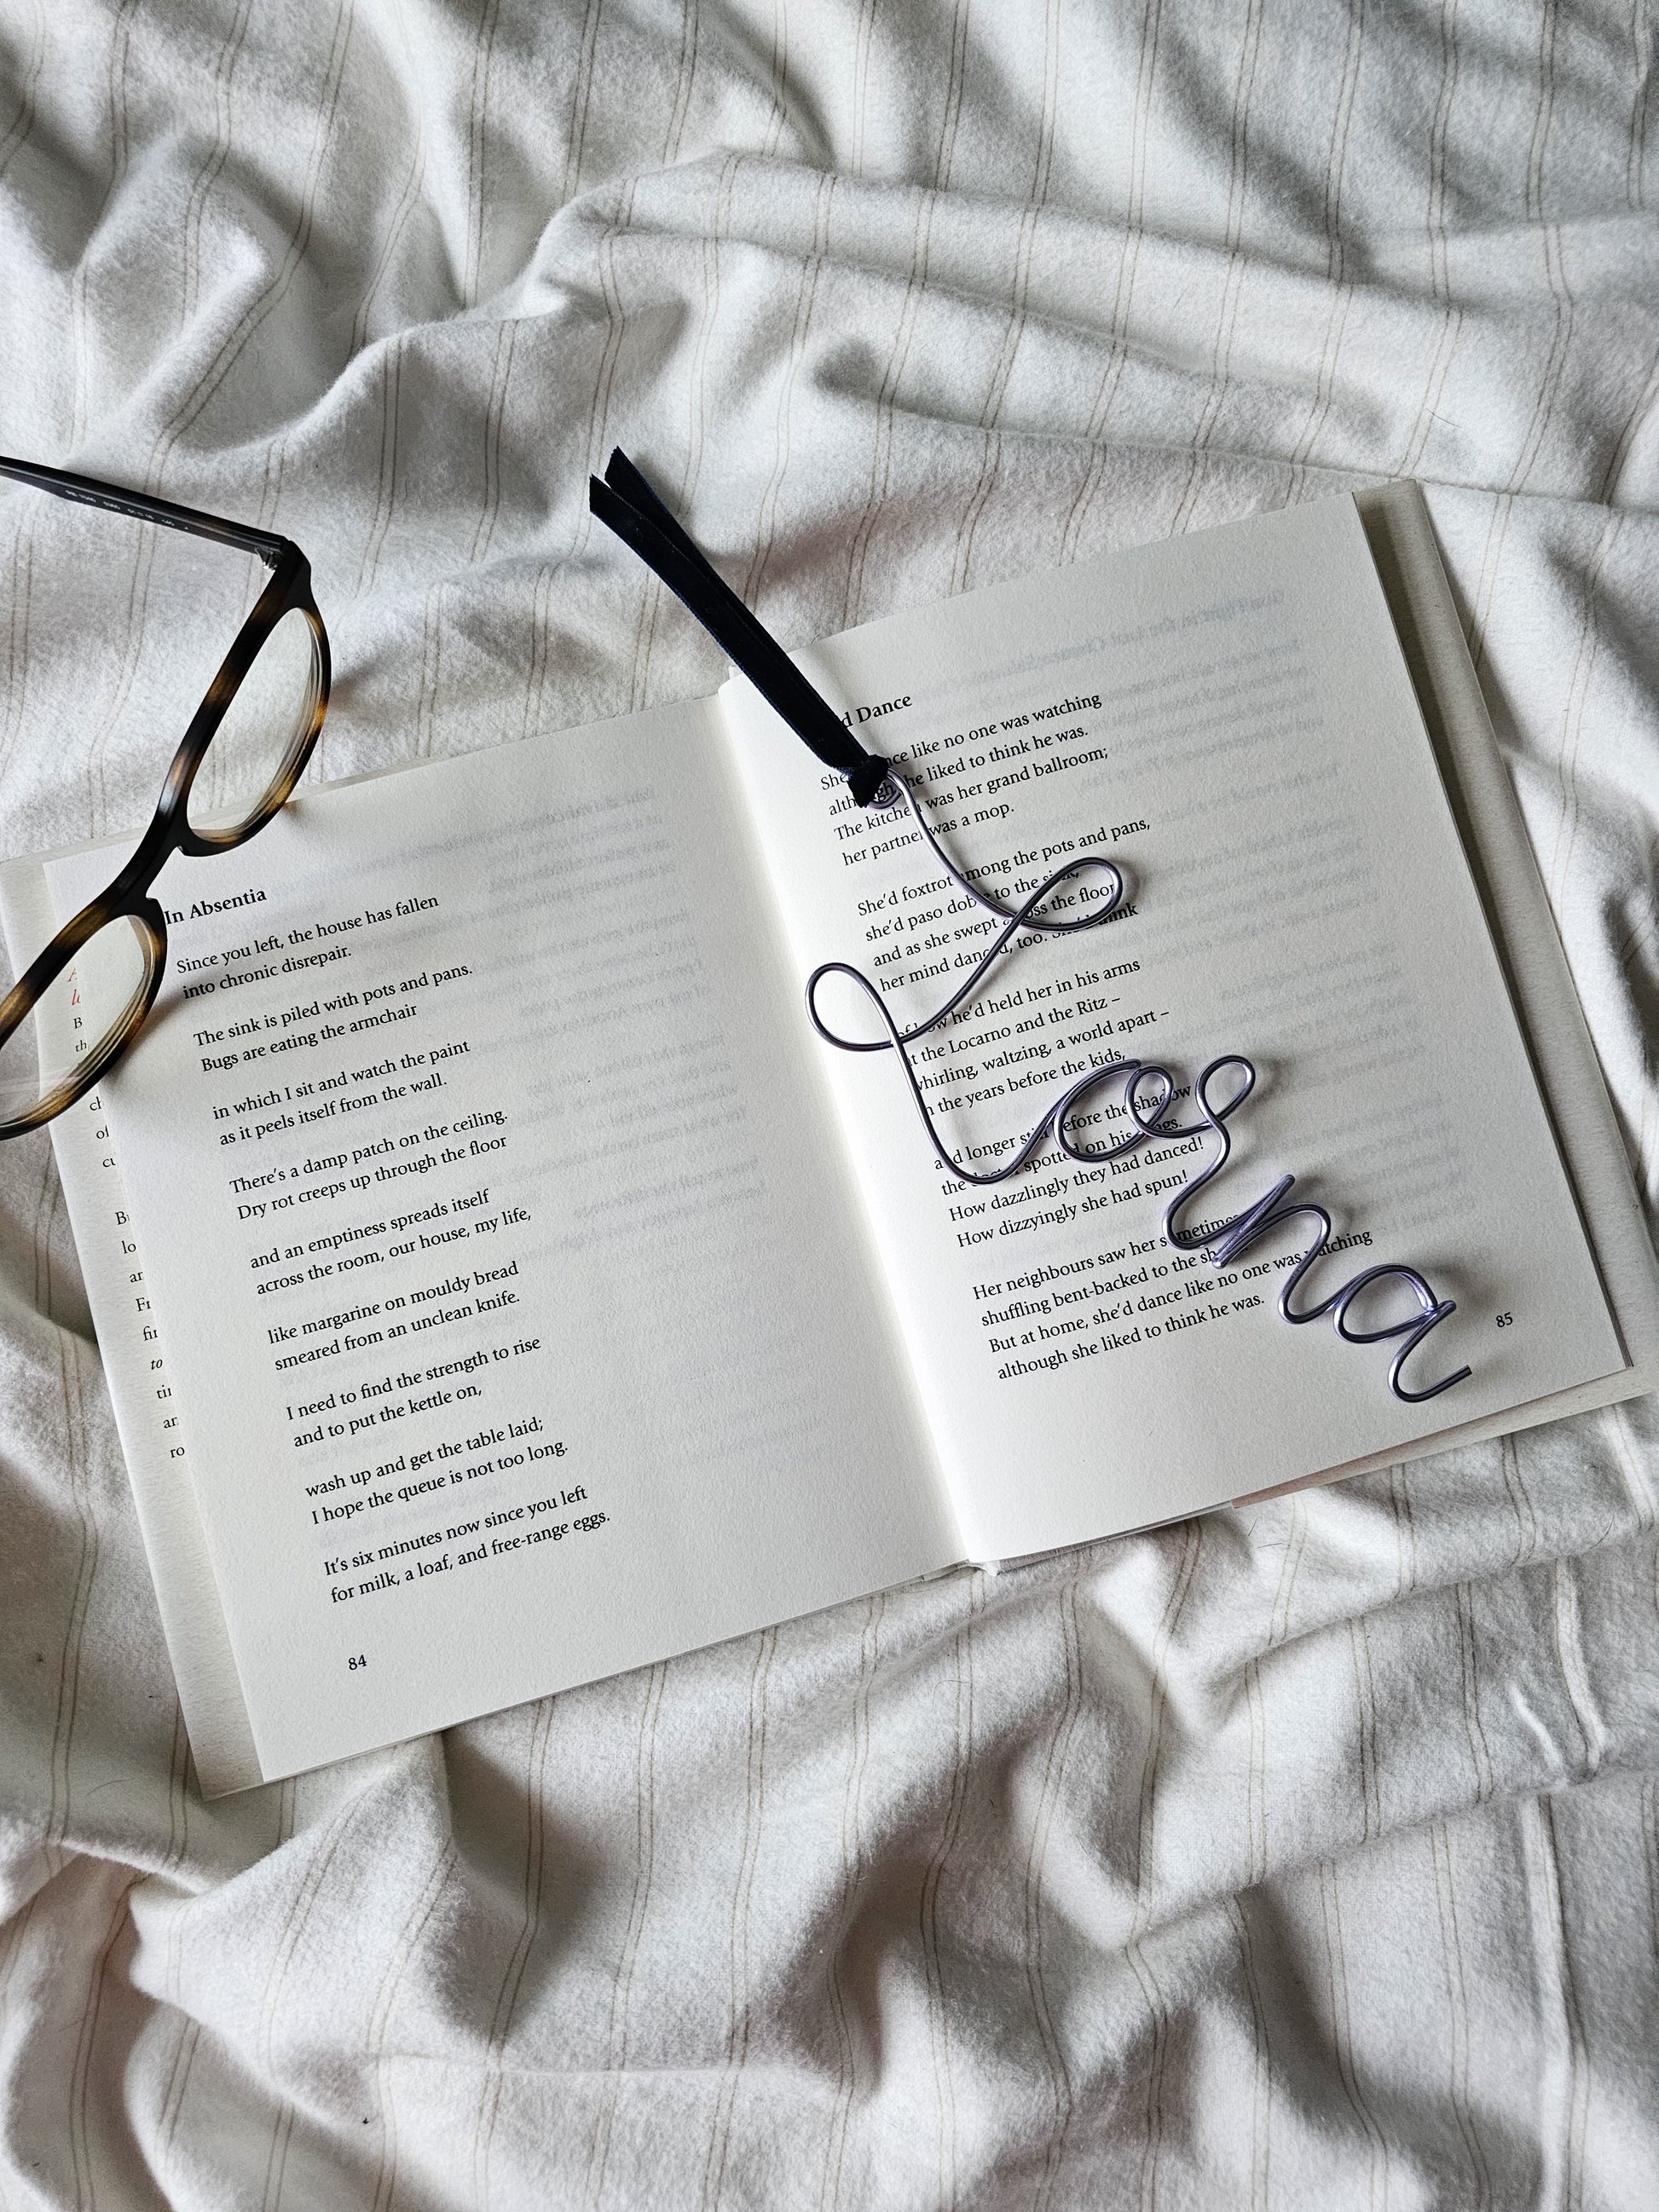 In Absentia
Since you left, the house has fallen
into chronic disrepair.
The sink is piled with pots and pans.
Bugs are eating the armchair
in which I sit and watch the paint
as it peels itself from the wall.
There's a damp patch on the ceiling.
Dry rot creeps up through the floor
and an emptiness spreads itself
across the room, our house, my life,
like margarine on mouldy bread
smeared from an unclean knife.
I need to find the strength to rise
and to put the kettle on,
wash up and get the table laid;
I hope the queue is not too long.
It's six minutes now since you left
for milk, a loaf, and free-range eggs.
84
Dance
like no one was watching
although she liked to think he was.
The kitchen was her grand ballroom;
her partner was a mop.
She'd foxtrot among the pots and pans,
she'd paso doble to the sink,
and as she swept across the floor
her mind danced, too.
of how he'd held her in his arms
at the Locarno and the Ritz –
whirling, waltzing, a world apart –
in the years before the kids,
and longer still before the shadow
the doctor spotted on his lungs.
How dazzlingly they had danced!
How dizzyingly she had spun!
Her neighbours saw her sometimes
shuffling bent-backed to the
But at home, she'd dance like no one was watching
although she liked to think he was.
85
Lesina